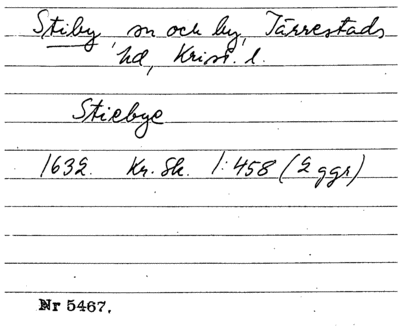 Stiby, sn och by, Järrestads
hd, Krist. l.
Stiebye
1632. Kr. Sk. 1:458 (2 ggr)
Nr 5467.